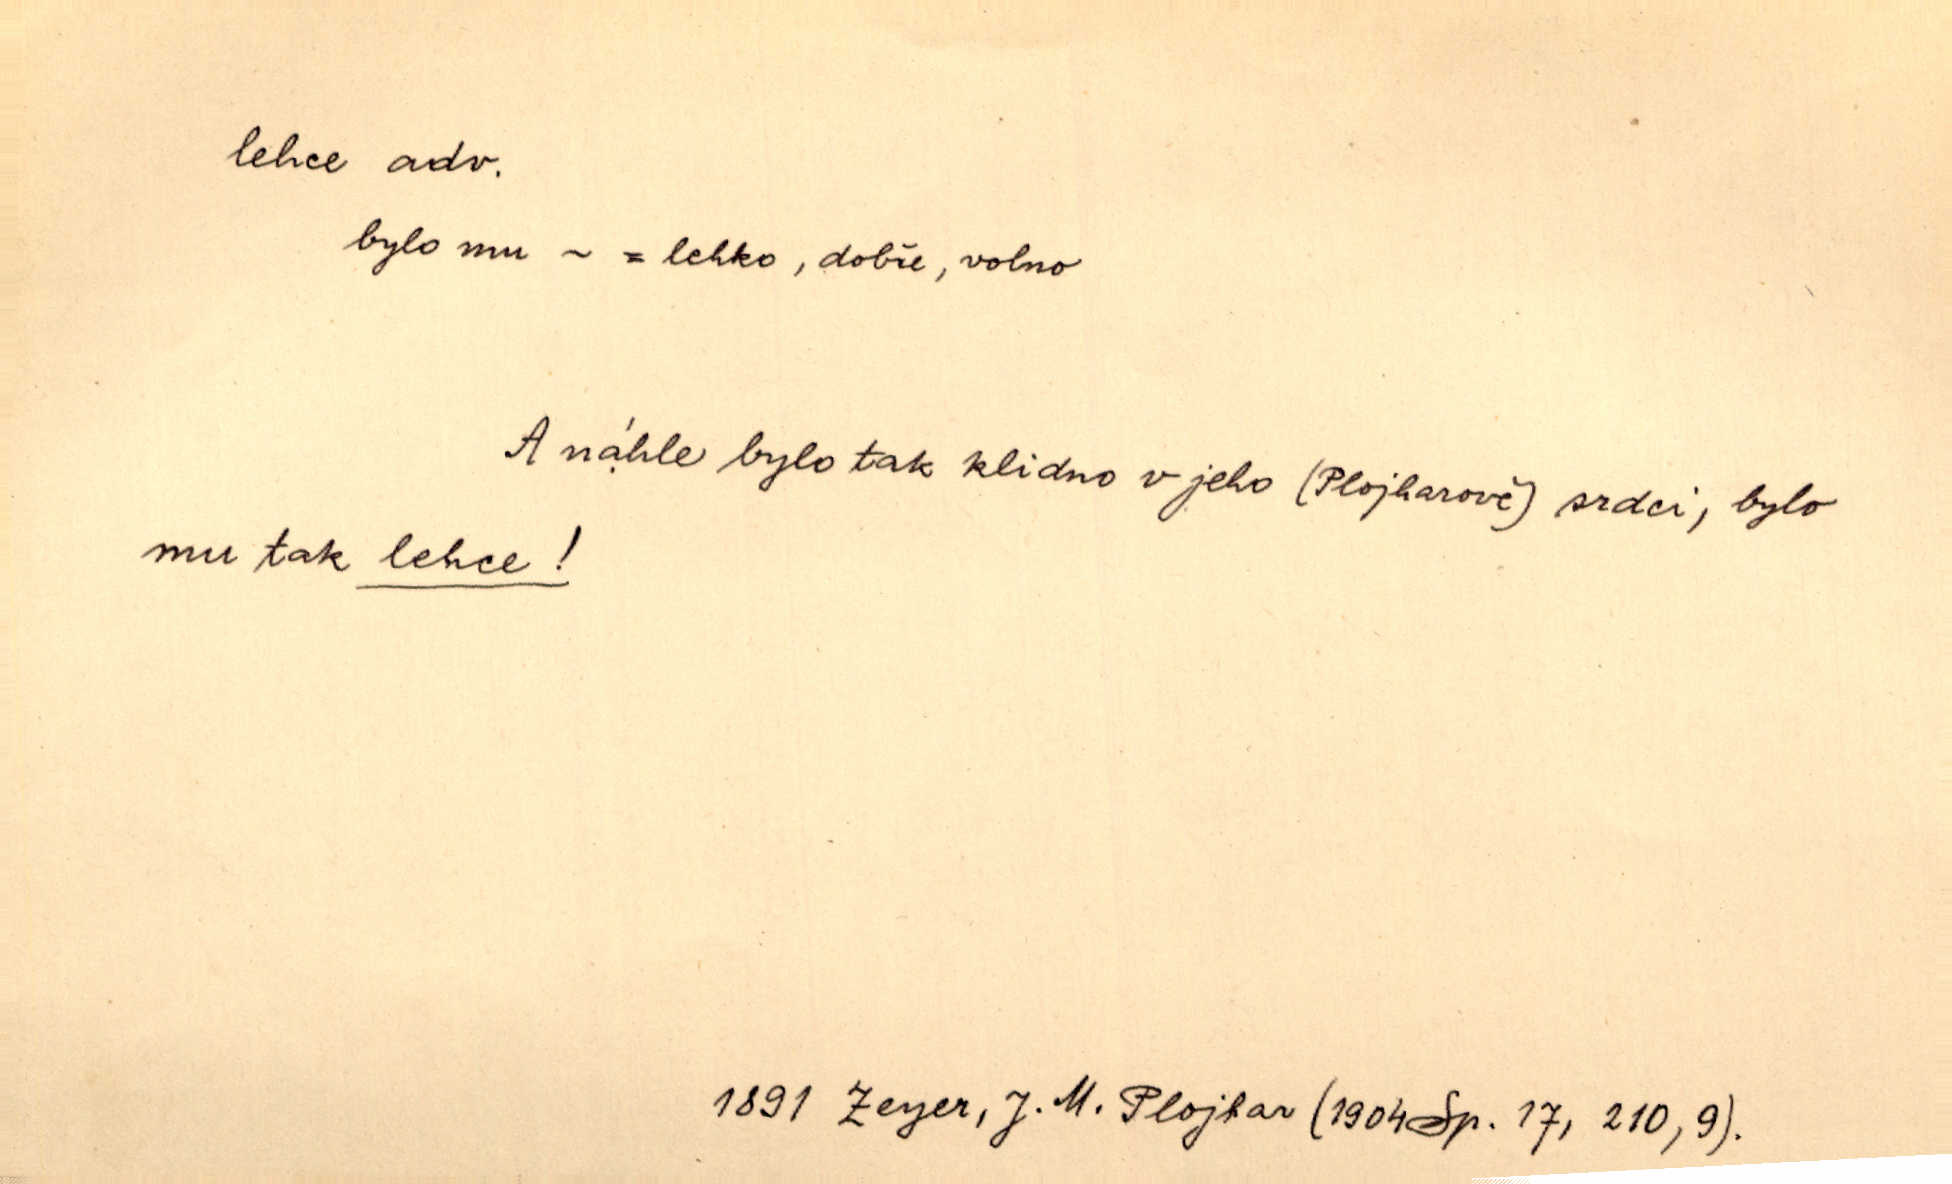 lehce adv.
bylo mu ~ = lehko, dobře, volno
A náhle bylo tak klidno v jeho (Plojharově) srdci, bylo
mu tak lehce!
1891 Zeyer, J. M. Plojhar (1904 Sp. 17, 210, 9).